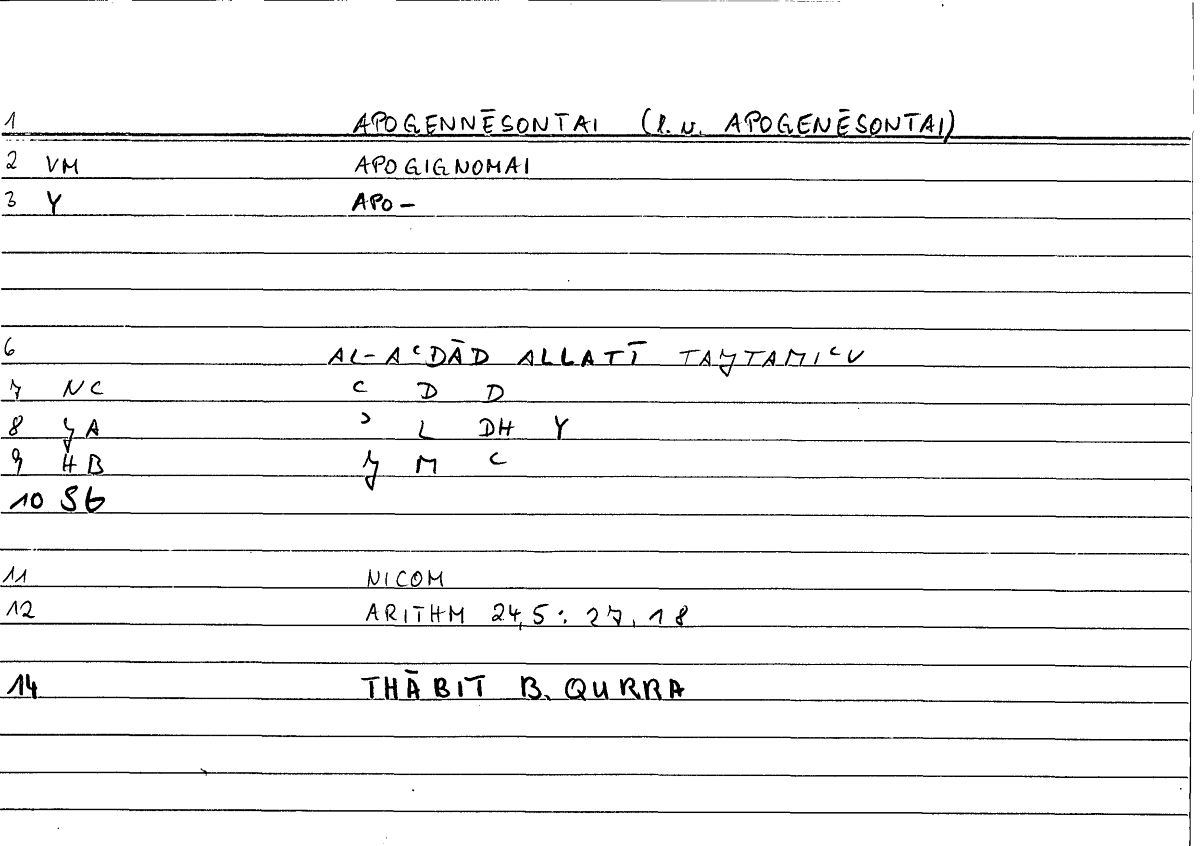 1 APOGENNĒSONTAI (l.v. APOGENĒSONTAI)
2 VM APOGIGNOMAI
3 Y APO-
6 AL-AʿDĀD ALLATĪ TAJTAMIʿU
7 NC ʿ D D
8 JA ʾ L DH Y
9 HB J M ʿ
10 S6
11 NICOM
12 ARITHM 24,5 : 27,18
14 THĀBIT B. QURRA